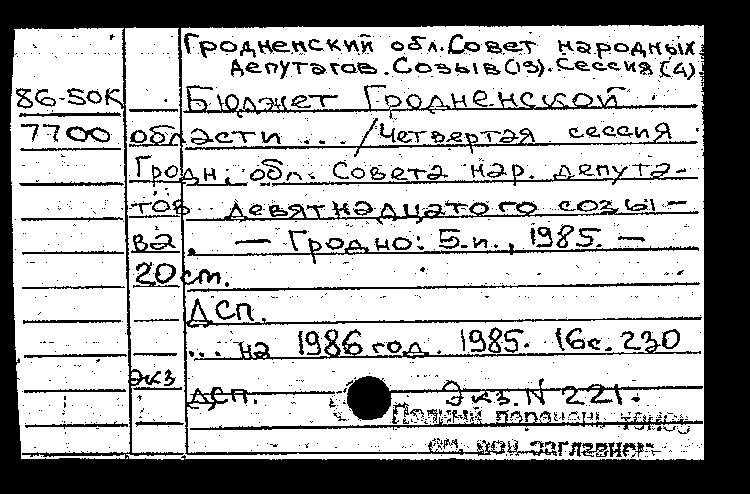 Гродненский обл. Совет народных
депутатов. Созыв (19). Сессия (4).
86-50К Бюджет Гродненской
7700 области ... / Четвертая сессия
Гродн. обл. Совета нар. депута-
тов девятнадцатого созы-
ва. — Гродно: Б.и., 1985. —
20 см.
ДСП.
... на 1986 год. 1985. 16с. 230
экз
ДСП. Экз. N 221.
Полный перечень томов
см. под заглавием